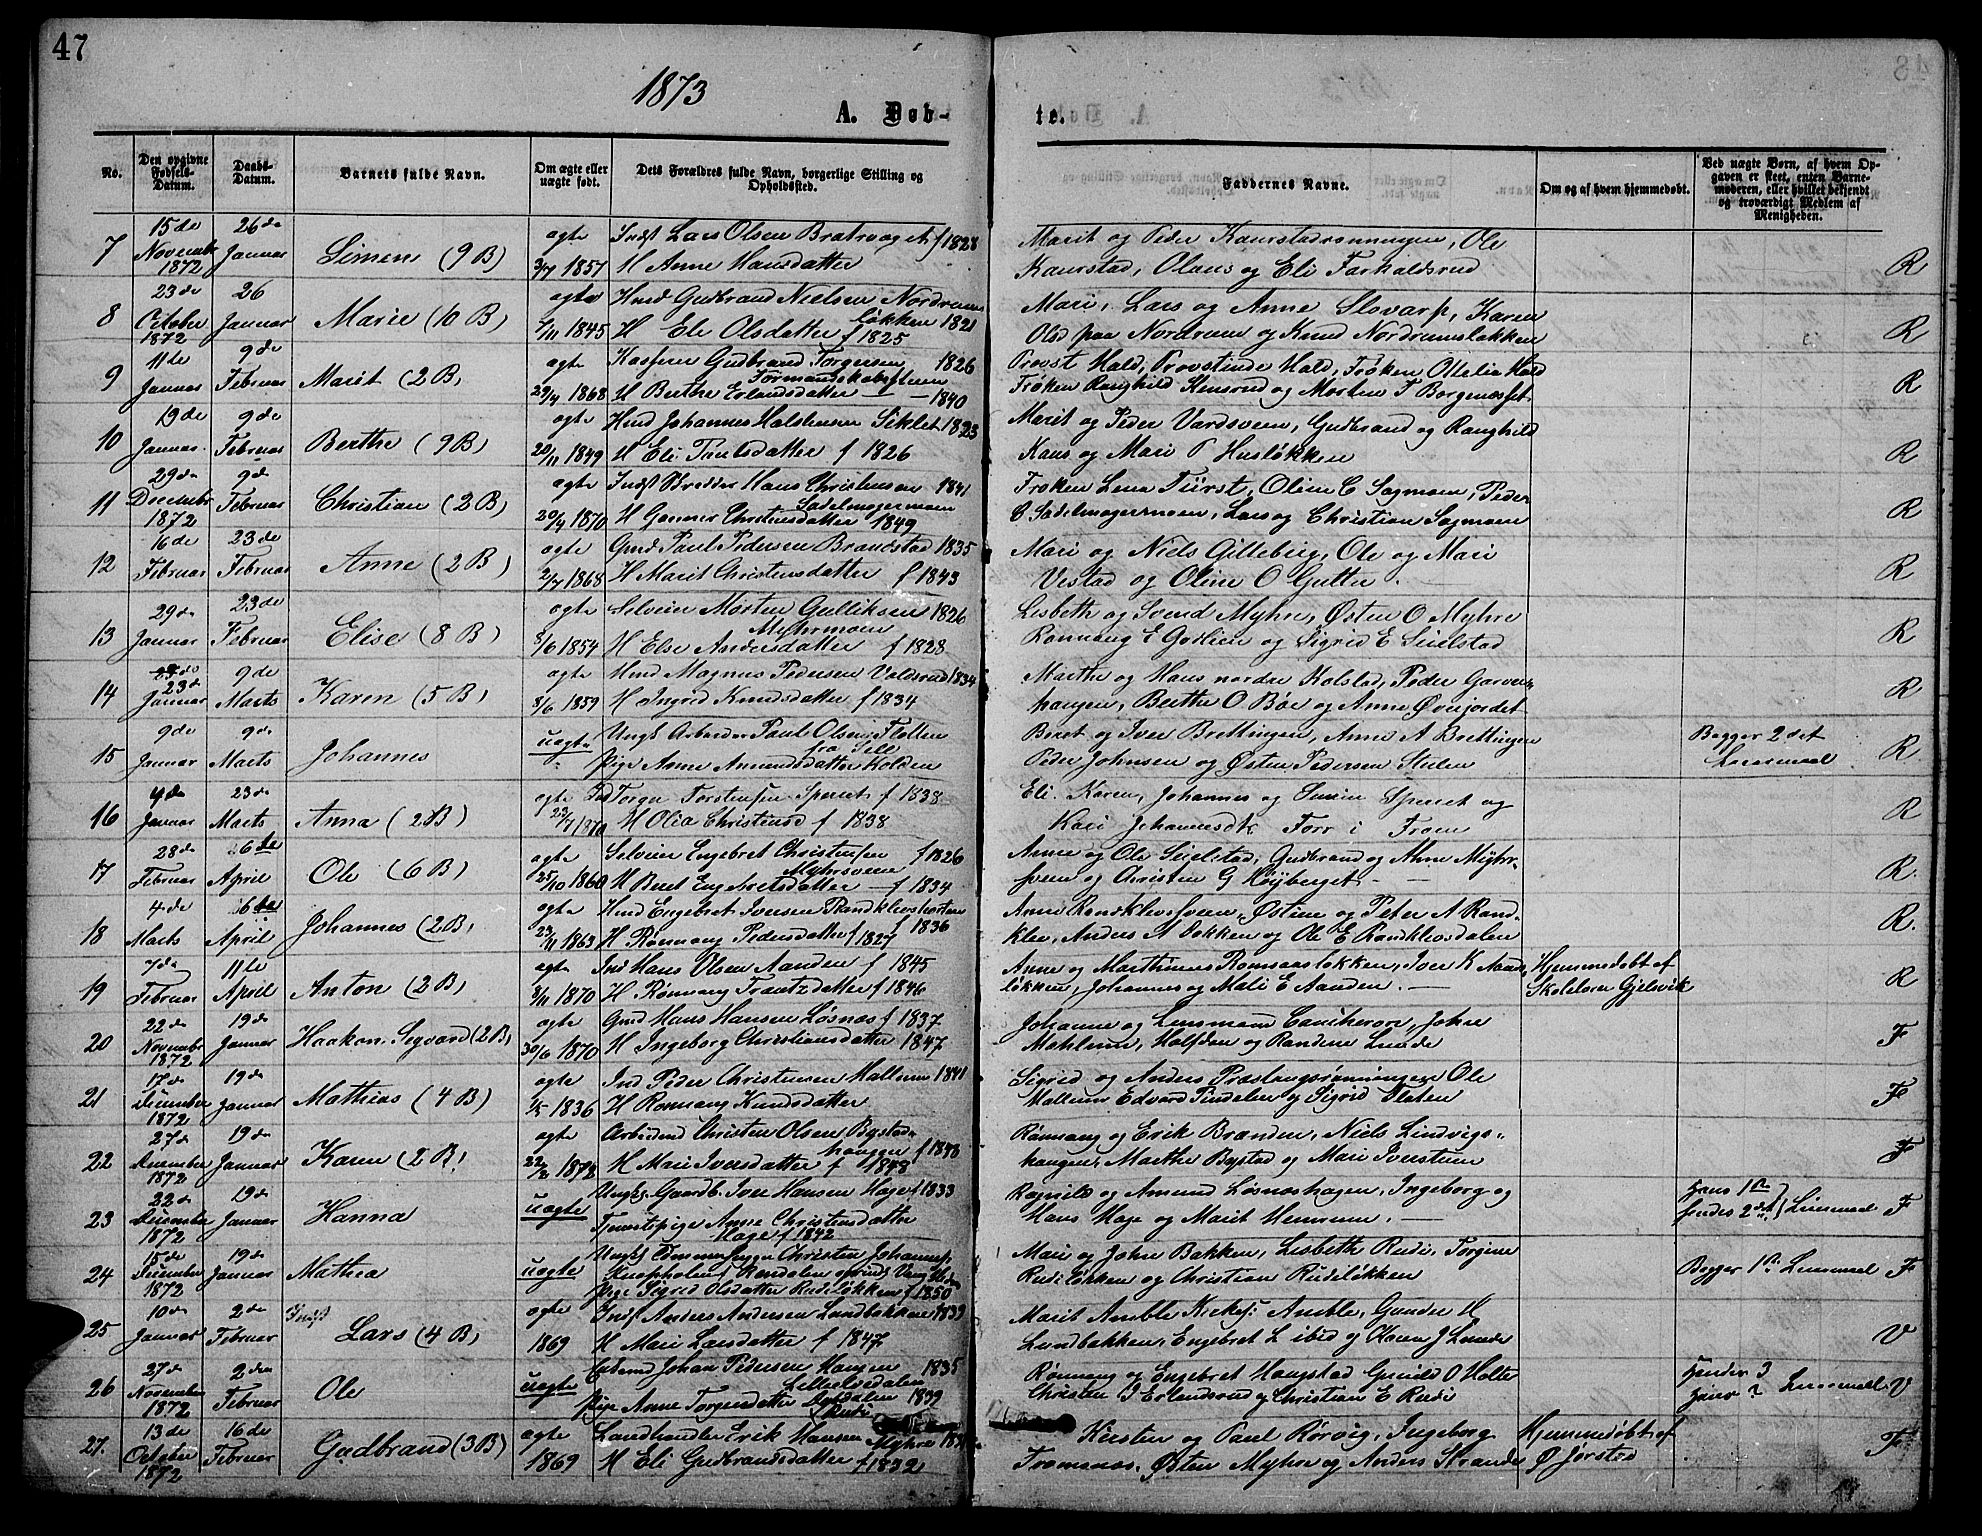 47
1873
A. Døb-
te.
No.
Den opgivne Fødsels-Datum.
Daabs-Datum.
Barnets fulde Navn.
Om ægte eller uægte født.
Dets Forældres fulde Navn, borgerlige Stilling og Opholdssted.
Faddernes Navne.
Om og af hvem hjemmedøbt.
Ved uægte Børn, af hvem Opgaven er skeet, enten Barnemoderen, eller hvilket bekjendt og troværdigt Medlem af Menigheden.
7 15de November 1872 26de Januar Simen (9 B) ægte 1857 Indst Lars Olsen f 1828
H Anne Hansdatter
Marit og Peder Kaurstadrønningen, Ole
Kaurstad, Olaus og Eli
R
8 23de October 1872 26 Januar Marie (10 B) ægte 1845 Hmd Gudbrand Nielsen Nordrumsløkken 1821
H Eli Olsdatter f 1825
Mari, Lars og Anne Slovarp, Karen
Olsd paa Nordrum og Knud Nordrumsløkken
R
9 11te Januar 9de Februar Marit (2 B) ægte 29/4 1868 Gudbrand Torgersen Formandskabstuen 1826
H Berthe Erlandsdatter 1840
Provst Hald, Provstinde Hald, Frøken Ottelia Hald
Frøken Ranghild Kensrud og Morten T Borgenæsset
R
10 19de Januar 9de Februar Berthe (9 B) ægte 20/11 1849 Hmd Johannes Halstensen Siklet 1823
H Eli Paulsdatter f 1826
Marit og Peder Vardsveen, Gudbrand og Ranghild
Kaus og Mari P Husløkken
R
11 29de December 1872 9de Februar Christian (2 B) ægte 20/4 1870 Indst Hans Christensen Sadelmagermoen 1841
H Gunner Christensdatter 1849
Frøken Lena Fürst, Oline C Sagmoen, Peder
C Sadelmagermoen, Lars og Christian Sagmoen
R
12 16de Februar 23de Februar Anne (2 B) ægte 2/7 1868 Gmd Paul Pedersen Brandstad 1835
H Marit Christensdatter f 1843
Mari og Niels Gilleberg, Ole og Mari
Vestad og Oline O Gutter
R
13 29de Januar 23de Februar Elise (8 B) ægte 8/6 1854 Selveier Morten Gulliksen Myhrmoen 1826
H Else Andersdatter f 1828
Lisbeth og Svend Myhre, Østen O Myhre
Rønnaug E Goslien og Sigrid E Seielstad
R
14 23de Januar 9de Marts Karen (5 B) ægte 8/6 1859 Hmd Magnus Pedersen Voldsrud 1834
H Ingrid Knudsdatter f 1834
Marthe og Hans nordre Kolstad, Peder Garver-
haugen, Berthe O Bøe og Anne Øveijordet
R
15 9de Januar 9de Marts Johannes uægte Ungk Arbeider Paul Olsen Flatten fra Sell
Pige Anne Amundsdatter Kolden
Beret og Iver Brettingen, Anne A Brettingen
Peder Johnsen og Østen Pedersen Stulen
Begger 2det Leiermaal
R
16 4de Januar 23de Marts Anna (2 B) ægte 23/7 1870 Ind Torger Torstensen Sperret f 1838
H Olia Christensd f 1838
Eli, Karen, Johannes og Simen Sperret og
Kari Johannesdt Forr i Fron
R
17 28de Februar 26de April Ole (6 B) ægte 25/10 1860 Selveier Engebret Christensen Myhrsveen f 1826
H Beret Engebretsdatter f 1834
Anne og Ole Seielstad, Gudbrand og Anne Myhr-
sveen og Christen G Høyberget
R.
18 4de Marts April Johannes (2 B) ægte 23/11 1863 Hmd Engebret Iversen f 1836
H Rønnaug Pedersdatter f 1827
Anne Randklevsveen, Østien og Peter A Rand-
klev, Anders A Bakken og Ole E Randklevsdalen
R.
19 7de Februar 11te April Anton (2 B) ægte 8/11 1870 Ind Hans Olsen Aanden f 1845
H Rønnaug Frantzdatter f 1846
Anne og Marthinus Romsaasløkken, Iver K Aand-
løkken, Johannes og Mali E Aanden.
Hjemmedøbt af
Skolelærer Gjelsvik
R
20 22de November 1872 19de Januar Haakon Segvard (2 B) ægte 30/6 1870 Gmd Hans Hansen Løsnæs f 1837
H Ingeborg Christiansdatter 1847
Johanne og Lensmand Caucheron, John
Mahlum, Halfdan og Randine Lunde
F
21 17de December 1872 19de Januar Mathias (4 B) ægte 1836 Ind Peder Christensen Mallum 1841
H Rønnaug Knudsdatter
Sigrid og Anders Præstengsrønningen Ole
Mallum Edvard Pindelen og Sigrid Flaten
F
22 27de December 1872 19de Januar Karen (2 B) ægte 1872 Arbeidsmd Christen Olsen Bystadhaugen f 1848
H Mari Iversdatter f 1848
Rønnaug og Erik Brænden, Niels Lindvigs-
haugen, Marthe Bystad og Mari Iverstuen
F
23 22de December 1872 19de Januar Hanna uægte Ungk Gaardb. Iver Hansen Hage f 1833
Tjenestpige Anne Christensdatter Hage f 1842
Ragnild og Amund Løsnæshagen, Ingeborg og
Hans Hage og Marit Hemrum.
Hans 1te
Hendes 2det Leiermaal
F
24 15de December 1872 19de Januar Mathea uægte Ungk Tømmerhugger Christen Johannes
Rendalen
Pige Sigrid Olsdatter Rudiløkken f 1850
Mari og John Bakken, Lisbeth Rudi, Torgine
Rudiløkken og Christian Rudiløkken
Begges 1te Leiermaal
F
25 10de Januar 2de Februar Lars (4 B) ægte 1869 Indst Anders Andersen Lundbakken 1839
H Mari Larsdatter f 1847
Marit Amble, Amble, Gunder H
Lundbakken, Engebret L ibid og Karen J Lunde
V
26 27de November 1872 2den Februar Ole uægte Johan Pedersen Haugen Lilleelvedalen 1835
Pige Anne Torgersdatter 1839
Rønnaug og Engebret Haugstad Gunild O Holter
Christen J Erlandsrud og Christian E Rudi
Hendes 3
Leiermaal
V
27. 13de October 1872 16de Februar Gudbrand (3 B) ægte 1869 Landhandler Erik Hansen Myhre
H Eli Gudbrandsdatter f 1832
Kirsten og Paul Rørvig, Ingeborg
Tromsnæs, Østen Myhre og Anders Strande
Hjemmedøbt af
Ø Jørstad
F